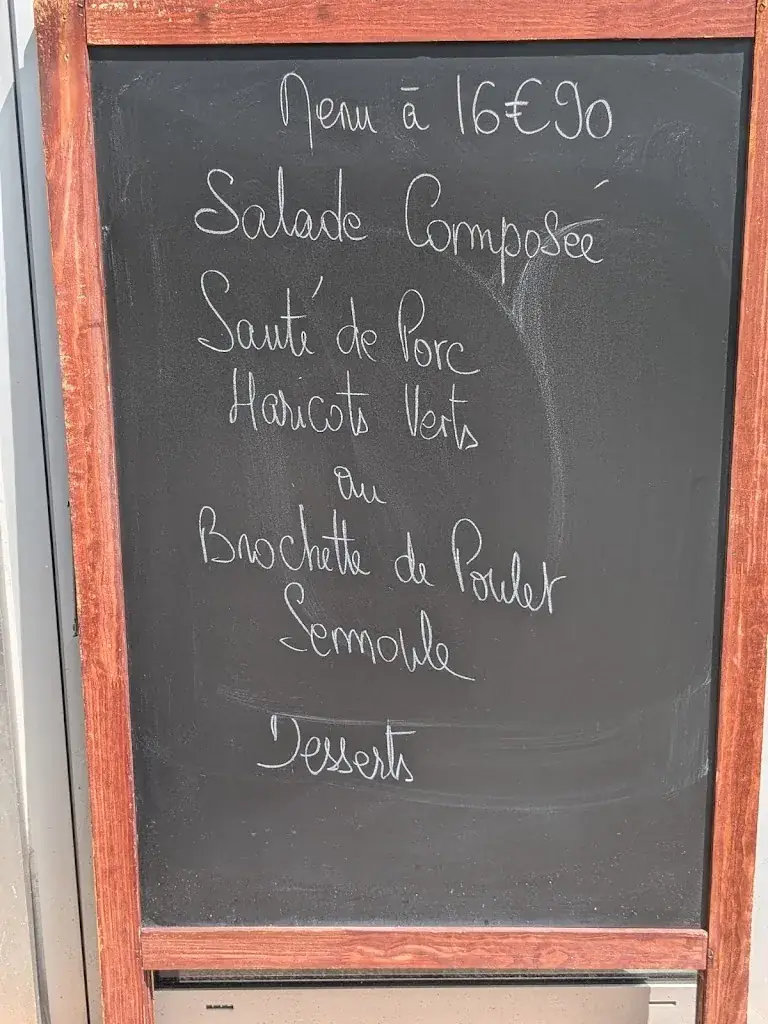 Menu à 16€90
Salade Composée
Sauté de Porc
Haricots Verts
ou
Brochette de Poulet
Semoule
Desserts